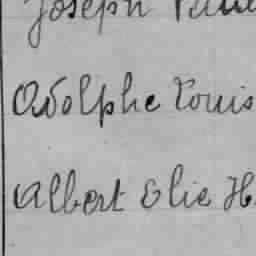 Joseph
Adolphe Louis
Albert Elie H